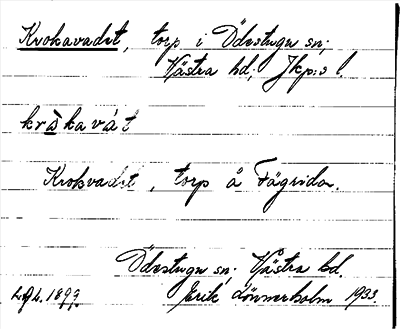 Krokavadet, torp i Ödestugu sn;
Västra hd; Jkp:s l.
kråkavát
Krokvadet, torp å Fägrida.
Ödestugu sn; Västra hd.
L.f.L. 1899. Erik Lönnerholm 1933